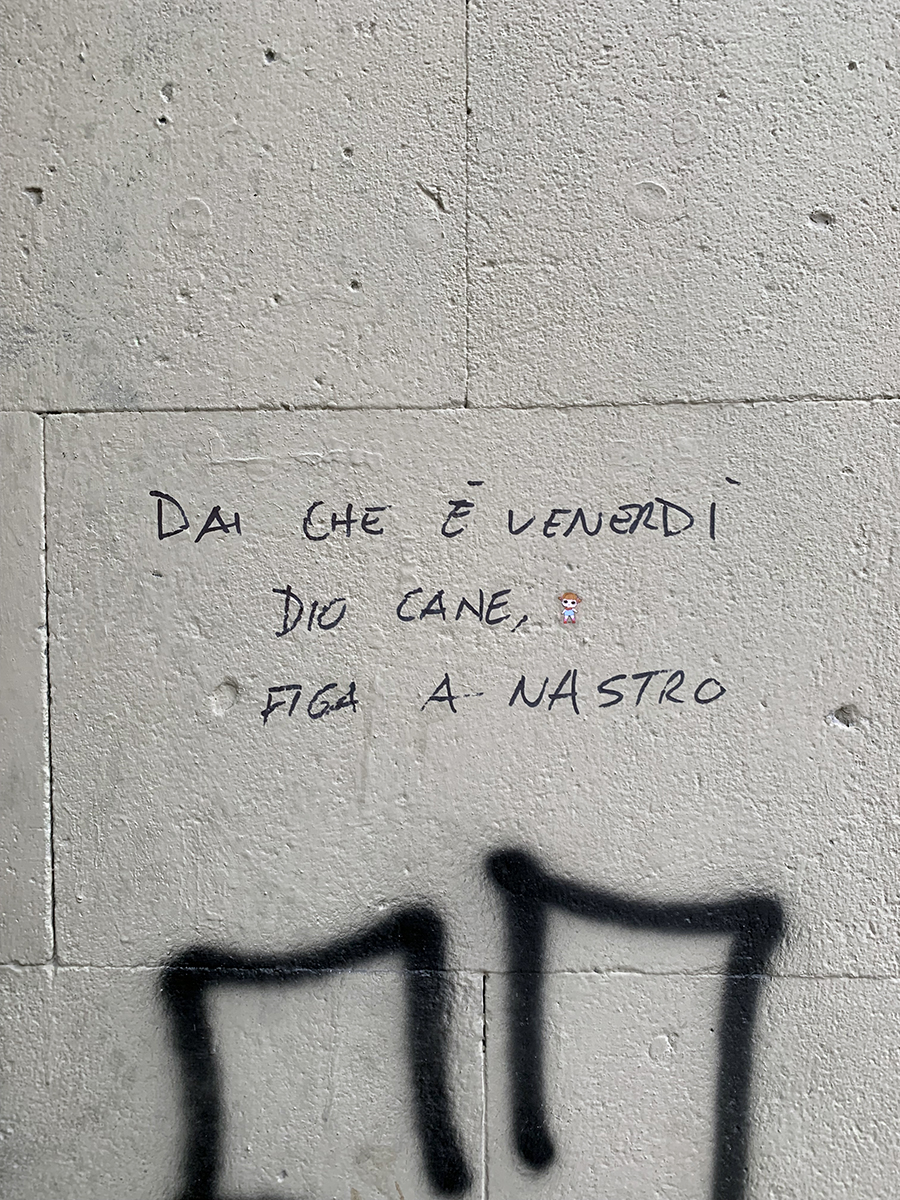 DAI CHE È VENERDÌ
DIO CANE,
FIGA A NASTRO